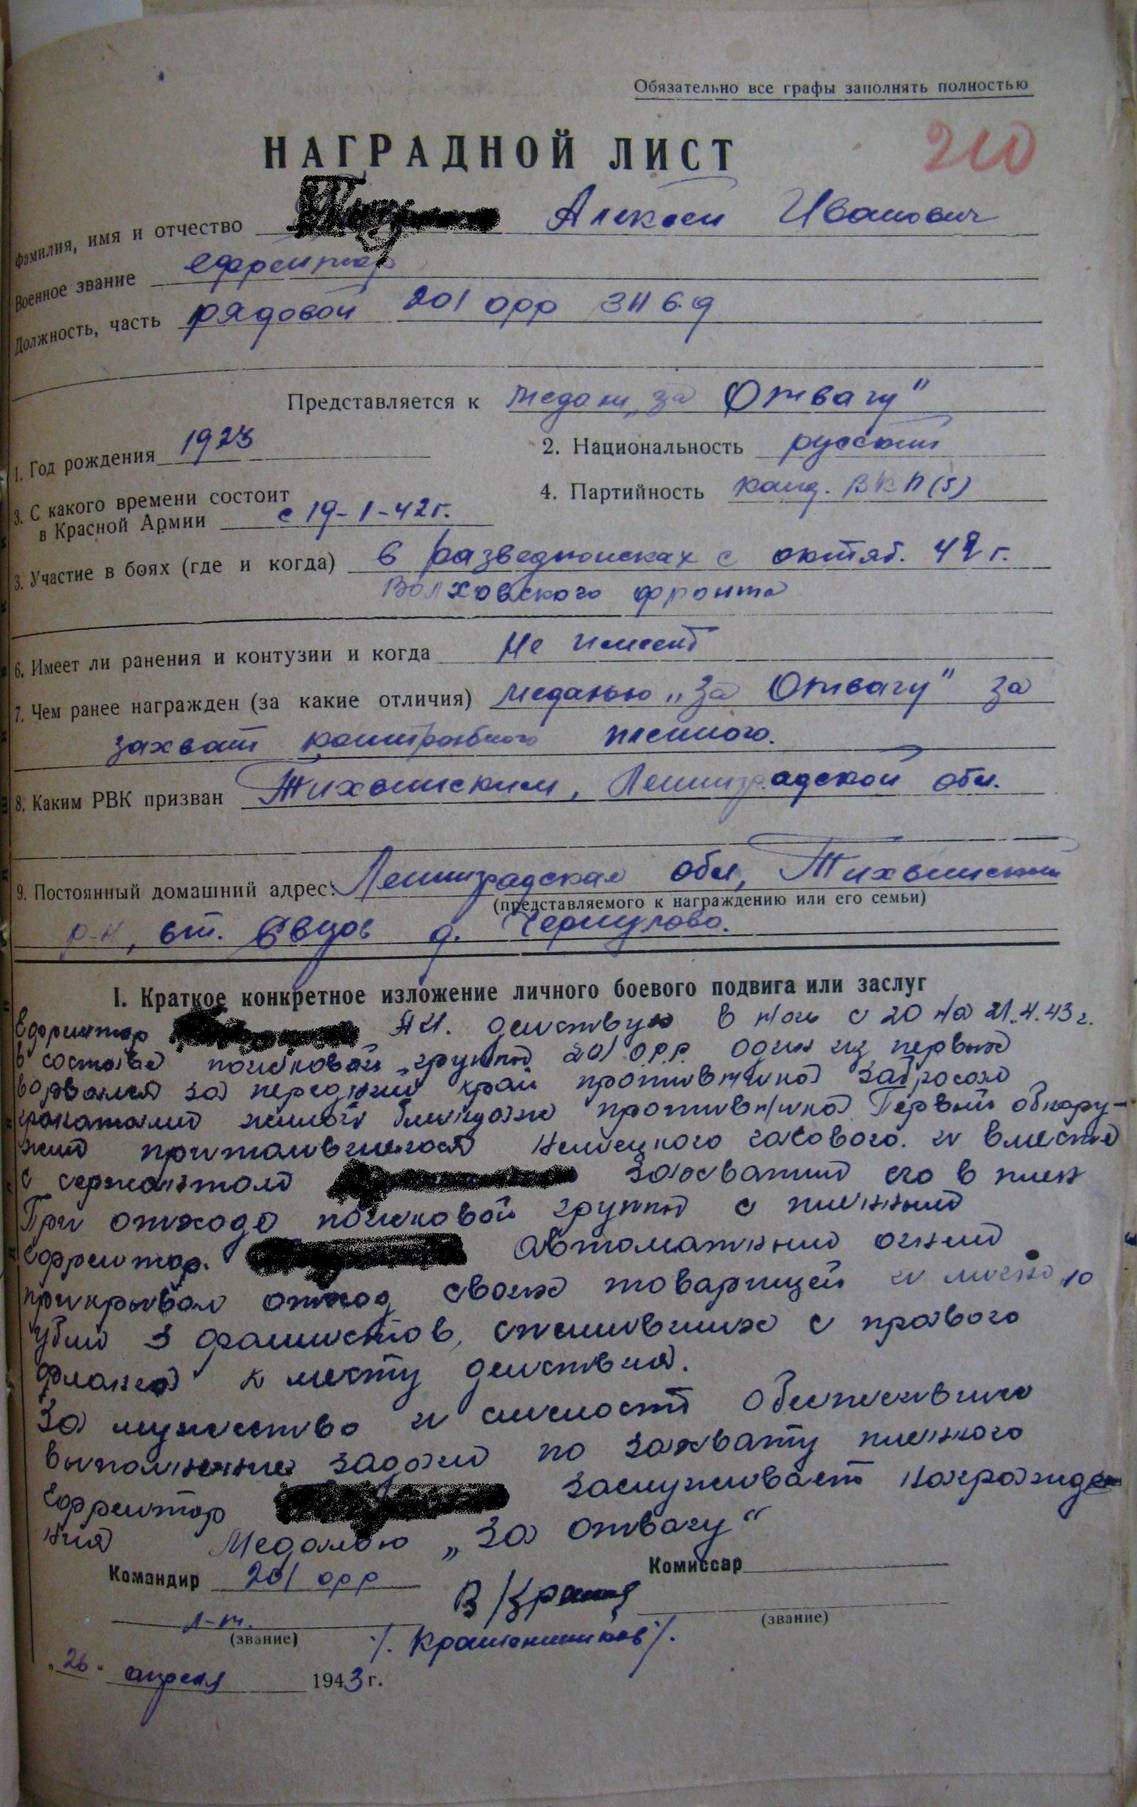 Обязательно все графы заполнять полностью
210
НАГРАДНОЙ ЛИСТ
Фамилия, имя и отчество Алексей Иванович
Военное звание ефрейтор
Должность, часть рядовой 201 орр
Представляется к медали „за Отвагу"
1. Год рождения 1923 2. Национальность русский
3. С какого времени состоит
в Красной Армии с 19-1-42г. 4. Партийность канд. ВКП(б)
3. Участие в боях (где и когда) в разведпоисках с октяб. 42 г.
Волховского фронта
6. Имеет ли ранения и контузии и когда Не имеет
7. Чем ранее награжден (за какие отличия) медалью „За Отвагу" за
захват контрольного пленного.
8. Каким РВК призван Тихвинским, Ленинградской обл.
9. Постоянный домашний адрес: Ленинградская обл, Тихвинский
(представляемого к награждению или его семьи)
р-н, ст. д.
I. Краткое конкретное изложение личного боевого подвига или заслуг
Ефрейтор А.И. действуя в ночь с 20 на 21.4.43г.
в составе поисковой группы 201 О.Р.Р. один из первых
ворвался за передний край противника забросал
гранатами жилой блиндаж противника. Первый обнару-
жил притаившегося немецкого часового. и вместе
с сержантом захватил его в плен
При отходе поисковой группы с пленным
Ефрейтор. автоматным огнем
прикрывал отход своих товарищей и лично
убил 3 фашистов, спешивших с правого
фланга к месту действия.
За мужество и смелость обеспечившие
выполнение задачи по захвату пленного
Ефрейтор заслуживает награжде
ния Медалью „За отвагу"
Командир 201 орр Комиссар
л-т.
(звание) (звание)
/. Крашенинников/.
„26" апреля 1943 г.